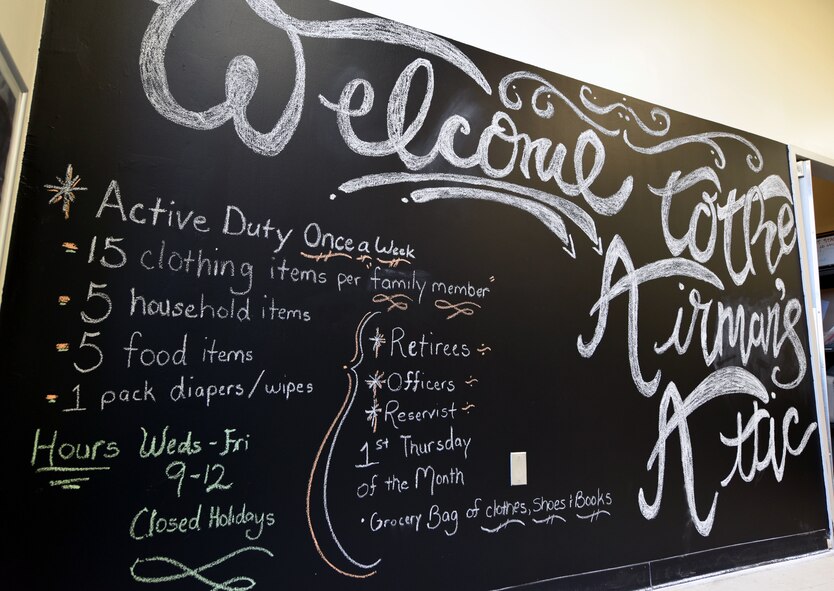 Welcome
to the
Airman's
Attic
* Active Duty Once a Week
- 15 clothing items per "family member"
- 5 household items
- 5 food items
- 1 pack diapers/wipes
Hours Weds - Fri
9-12
Closed Holidays
* Retirees
* Officers
* Reservist
1st Thursday
of the Month
· Grocery Bag of clothes, Shoes & Books